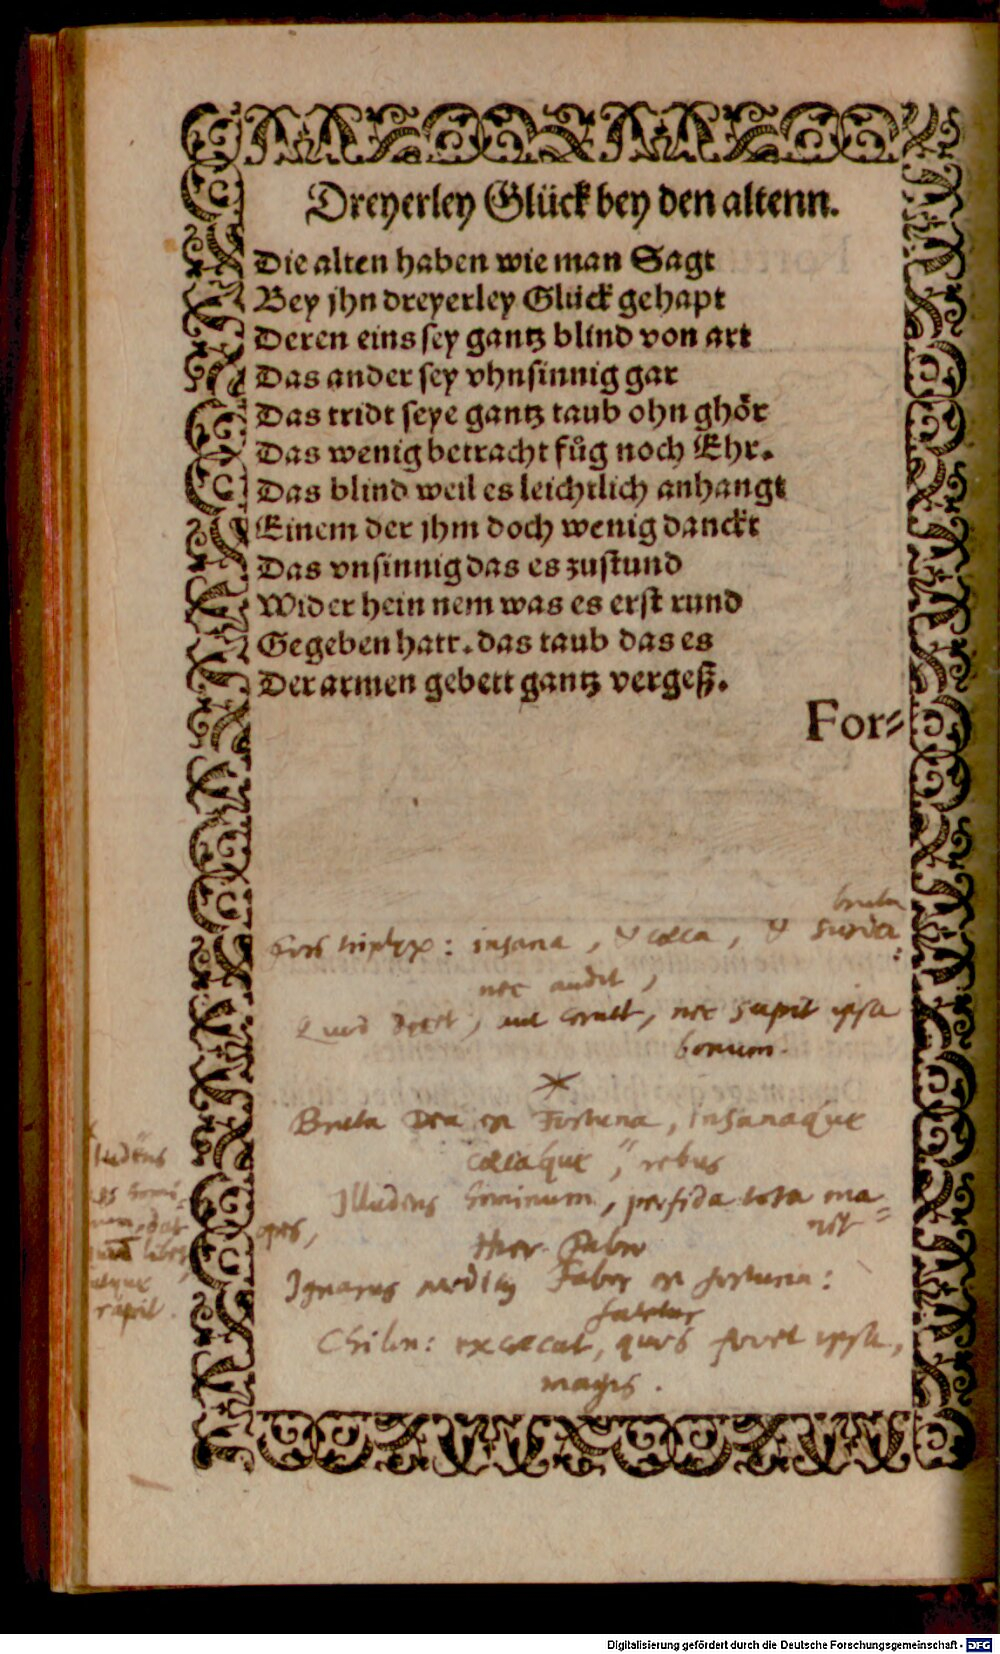 Dreyerley Glück bey den altenn.
Die alten haben wie man Sagt
Bey jhn dreyerley Glück gehapt
Deren eins sey gantz blind von art
Das ander sey vhnsinnig gar
Das tridt seye gantz taub ohn ghör
Das wenig betracht fůg noch Ehr.
Das blind weil es leichtlich anhangt
Einem der jhm doch wenig danckt
Das vnsinnig das es zustund
Wider hein nem was es erst rund
Gegeben hatt. das taub das es
Der armen gebett gantz vergeß.
For-
bruta
Sors triplex: insana, & cæca, & surda:
nec audit,
Quid decet, aut cernit, nec sapit ipsa
bonum.
Bruta Dea en Fortuna, insanaque
cæcaque, rebus
Illudens hominum, perfida tota ma-
net
opes,
Ignarus Faber en fortunæ:
fatetur
Chilon: excæcat, quos fovet ipsa,
magis.
Iudens
dat
libet,
atque
rapit.
Digitalisierung gefördert durch die Deutsche Forschungsgemeinschaft - DFG